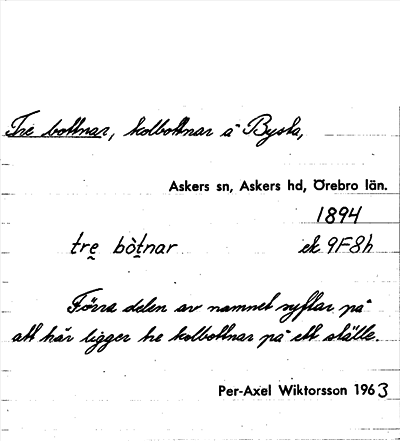 Tre bottnar, kolbottnar å Bysta,
Askers sn, Askers hd, Örebro län.
1894
trę bòt̰nar ek 9F8h
Förra delen av namnet syftar på
att här ligger tre kolbottnar på ett ställe.
Per-Axel Wiktorsson 1963